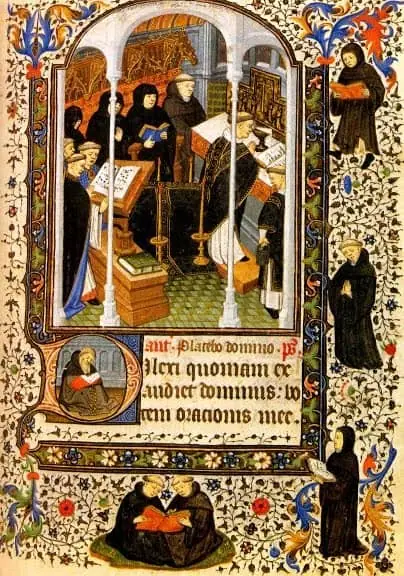 ant. Placebo domino. ps.
Ilexi quoniam ex
audiet dominus: vo
cem oracionis mee